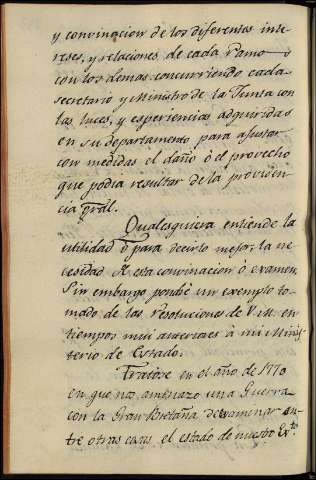 y convinacion de los diferentes inte-
reses, y relaciones de cada ramo
con los demas concurriendo cada
secretario y Ministro de la Junta con
las luces, y experiencias adquiridas
en su departamento para ajustar
con medidas el daño ò el provecho
que podia resultar de la providen-
cia gral.
Qualesquiera entiende la
utilidad ò para decirlo mejor, la ne-
cesidad de esta convinacion ò examen
Sin embargo pondré un exemplo to-
mado de las resoluciones de V.M. en
tiempos mui anteriores à mi Minis-
terio de Estado.
Tratose en el año de 1770
en que nos amenazo una Guerra
con la Gran Bretaña, de examinar en-
tre otras cosas el estado de nuestro Exto